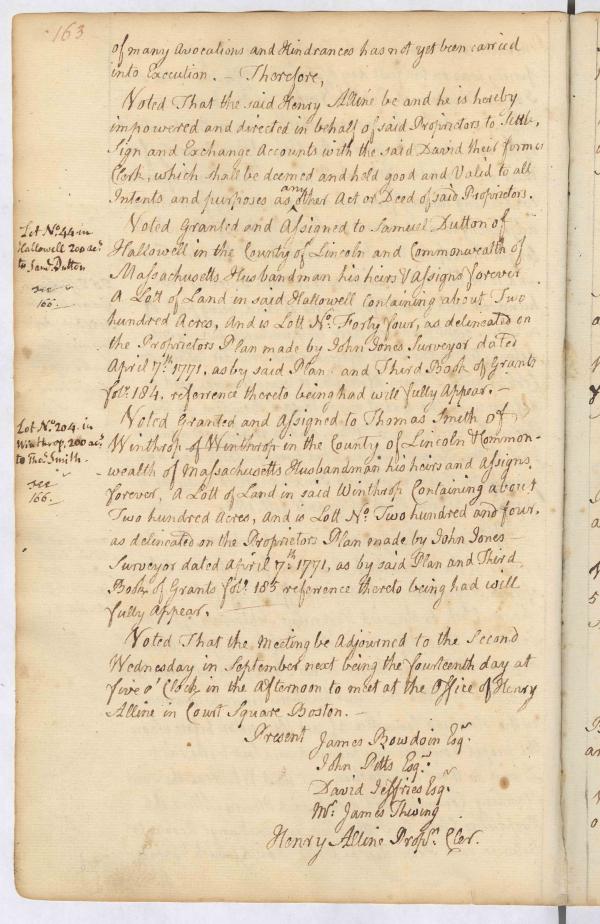 163
of many Avocations and Hindrances has not yet been carried
into Execution. – Therefore,
Voted That the said Henry Alline be and he is hereby
impowered and directed in behalf of said Proprietors to Settle,
Sign and Exchange Accounts with the said David their former
Clerk, which shall be deemed and held good and Valid to all
Intents and purposes as any other Act or Deed of said Proprietors.
Lot No. 44 in
Hallowell 200 acs
to Saml. Dutton
see
166.
Voted Granted and Assigned to Samuel Dutton of
Hallowell in the County of Lincoln and Commonwealth of
Massachusetts Husbandman his heirs & Assigns forever
A Lott of Land in said Hallowell Containing about Two
hundred Acres, And is Lott No. Forty four, as delineated on
the Proprietors Plan made by John Jones Surveyor dated
April 7.th 1771. as by said Plan and Third Book of Grants
folo. 184. referrence thereto being had will fully Appear. –
Lot No. 204. in
Winthrop, 200 acs
to Thos. Smith.
see
166.
Voted Granted and Assigned to Thomas Smith of
Winthrop of Winthrop in the County of Lincoln & Common-
wealth of Massachusetts Husbandman his heirs and Assigns
forever, A Lott of Land in said Winthrop Containing about
Two hundred Acres, And is Lott No. Two hundred and four.
as delineated on the Proprietors Plan made by John Jones
Surveyor dated April 7.th 1771, as by said Plan and Third
Book of Grants folo. 185 referrence thereto being had will
fully Appear.
Voted That the Meeting be Adjourned to the Second
Wednesday in September next being the fourteenth day at
five o' Clock in the Afternoon to meet at the Office of Henry
Alline in Court Square Boston. –
Present James Bowdoin Esqr.
John Pitts Esqr.
David Jeffries Esqr.
Mr. James Thwing
Henry Alline Proprs. Cler.